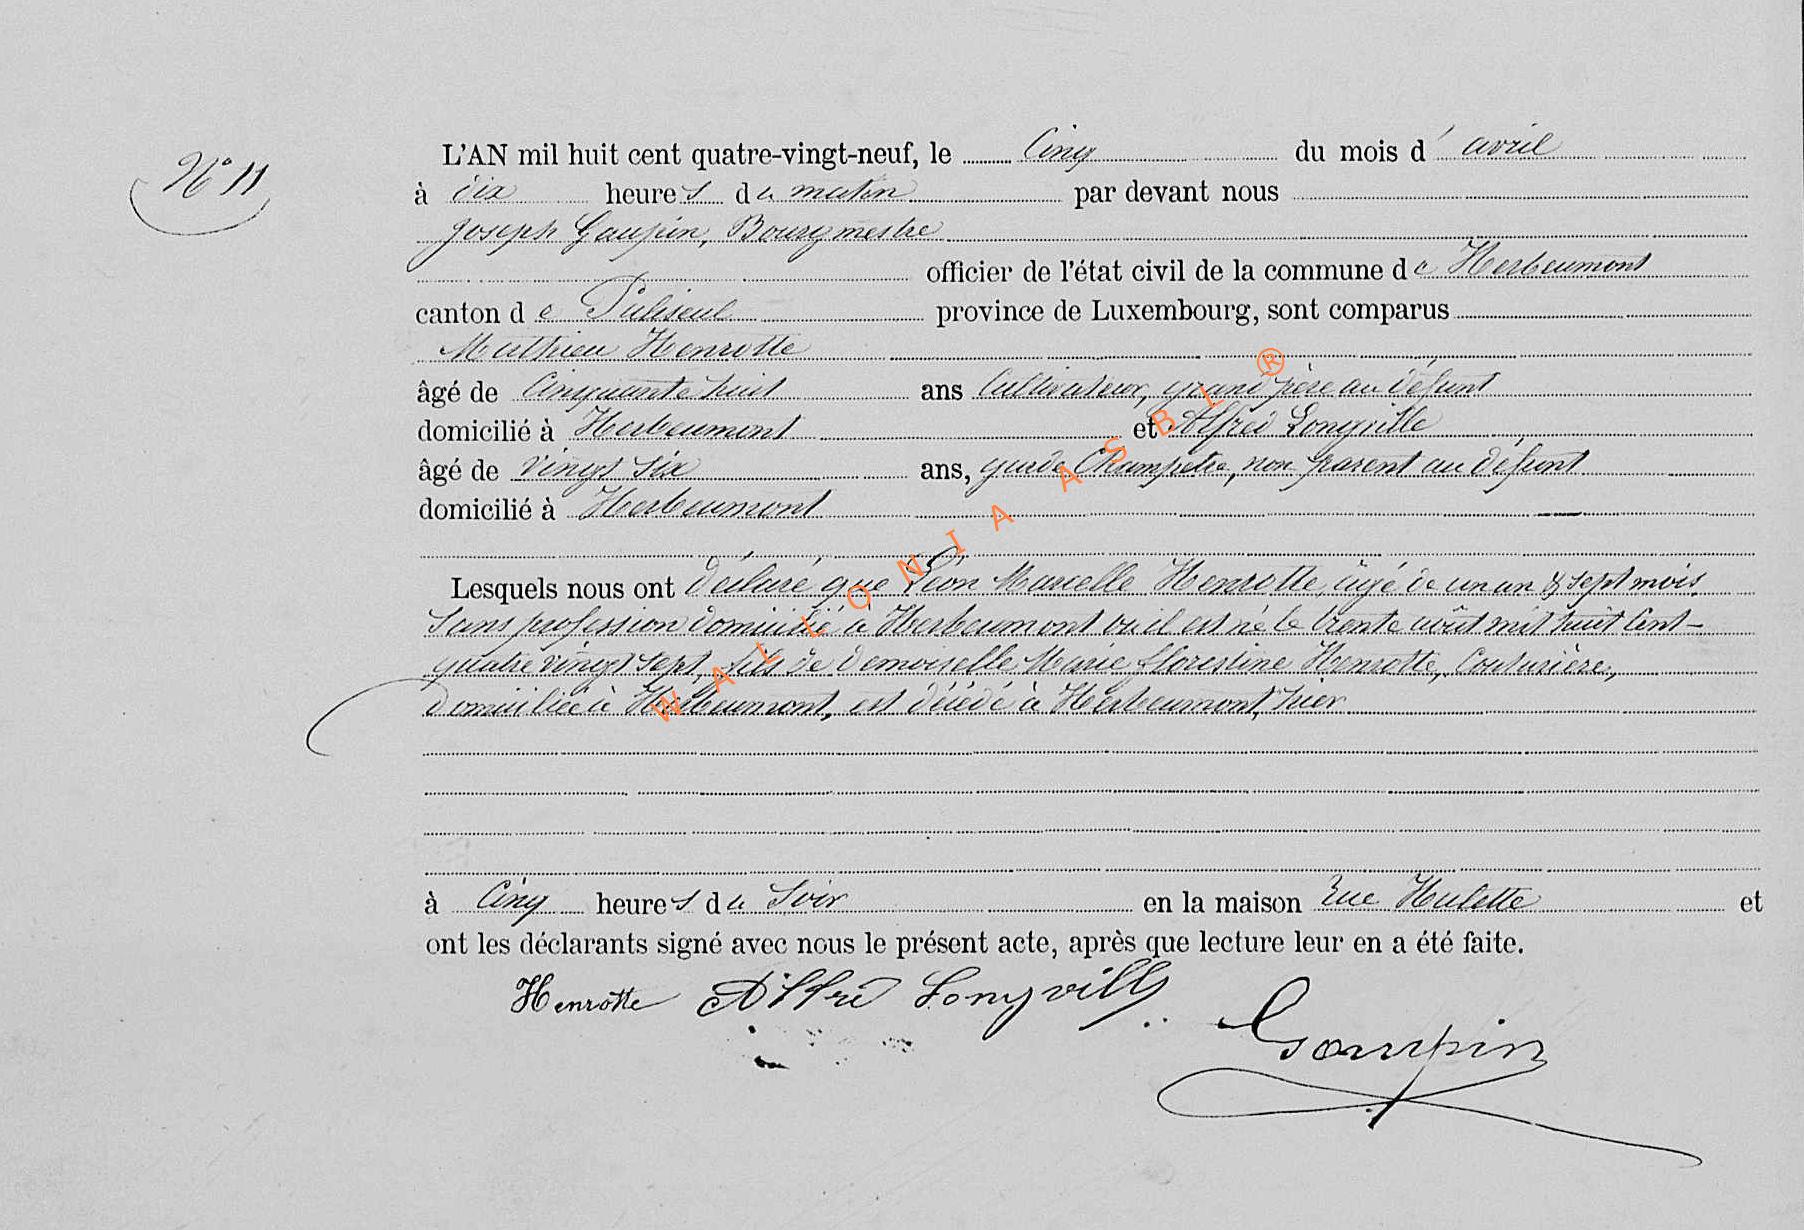 N° 11
L'AN mil huit cent quatre-vingt-neuf, le Cinq du mois d'avril
à dix heures du matin par devant nous
Joseph Gaupin, Bourgmestre
officier de l'état civil de la commune de Herbeumont
canton de Paliseul province de Luxembourg, sont comparus
Mathieu Henrotte
âgé de Cinquante huit ans Cultivateur, grand père au défunt
domicilié à Herbeumont et Alfred Longville
âgé de vingt six ans, garde Champetre, non parent au défunt
domicilié à Herbeumont
Lesquels nous ont déclaré que Léon Marcelle Henrotte, âgé de un an & sept mois,
Sans profession domicilié à Herbeumont ou il est né le trente août mil huit Cent-
quatre vingt sept, fils de demoiselle Marie florestine Henrotte, Couturière,
domiciliée à Herbeumont, est décédé à Herbeumont, hier
à Cinq heures du Soir en la maison rue Hulette et
ont les déclarants signé avec nous le présent acte, après que lecture leur en a été faite.
Henrotte Alfred Longville
Gaupin
WALLONIA ASBL ®